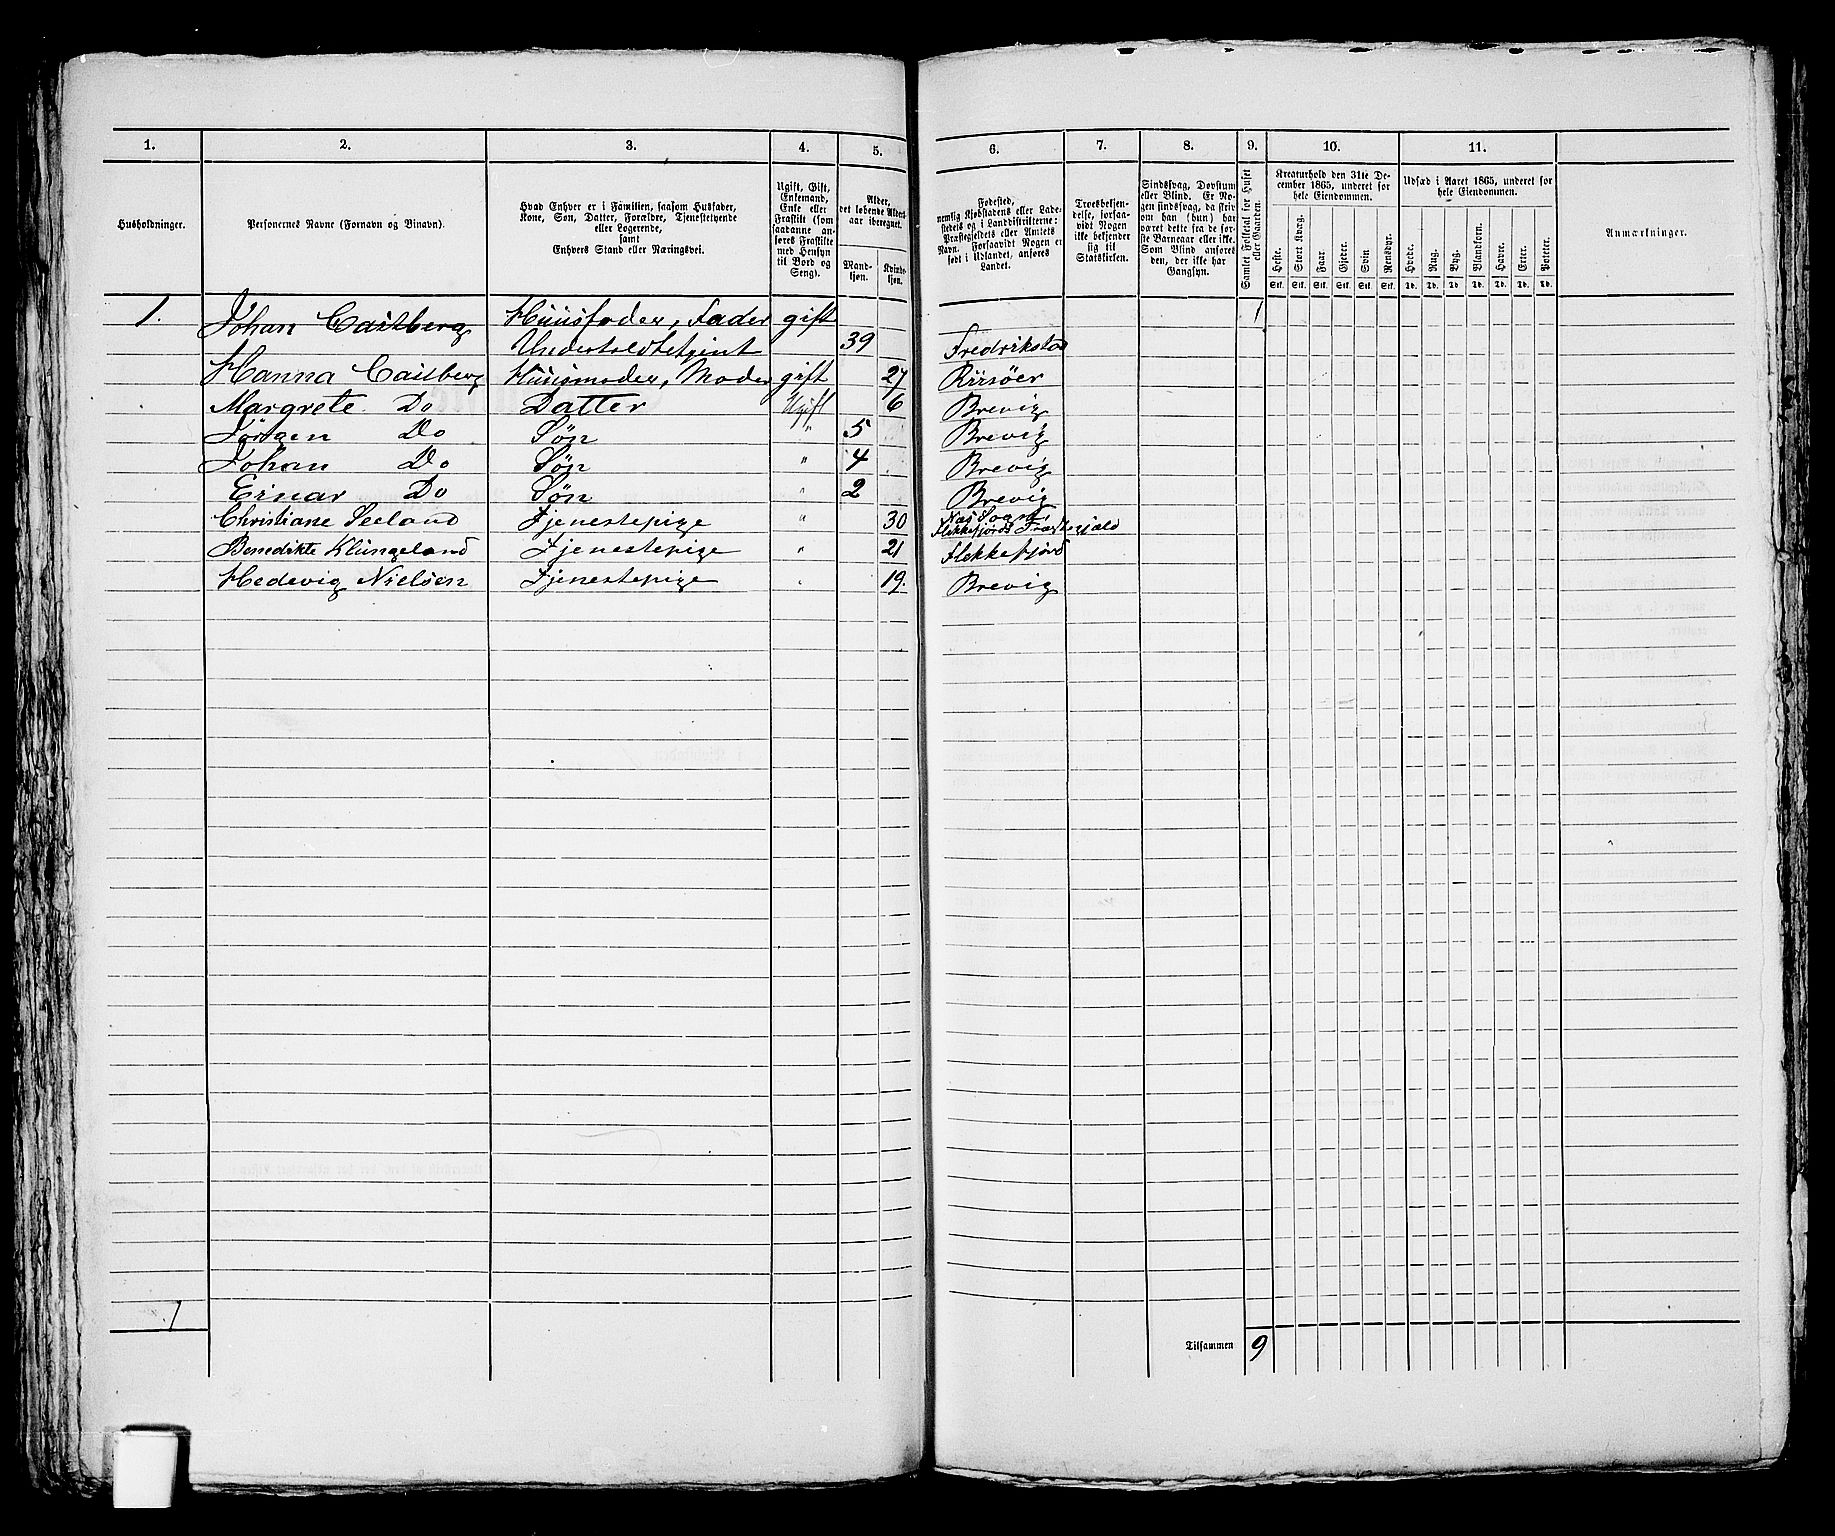 1. 2. 3. 4. 5. 6. 7. 8. 9. 10. 11.
Husholdninger.
Personernes Navne (Fornavn og Binavn).
Hvad Enhver er i Familien, saasom Husfader,
Kone, Søn, Datter, Forældre, Tjenestetyende
eller Logerende,
samt
Enhvers Stand eller Næringsvei.
Ugift, Gift,
Enkemand,
Enke eller
Fraskilt (som
saadanne an-
føres Fraskilte
med Hensyn
til Bord og
Seng).
Alder,
det løbende Alders-
aar iberegnet.
Mand-
kjøn.
Kvinde-
kjøn.
Fødested,
nemlig Kjøbstadens eller Lade-
stedets og i Landdistrikterne:
Præstegjeldets eller Amtets
Navn. Forsaavidt Nogen er
født i Udlandet, anføres
Landet.
Troesbekjen-
delse, forsaa-
vidt Nogen
ikke bekjender
sig til
Statskirken.
Sindssvag, Døvstum
eller Blind. Er No-
gen sindssvag, da skriv
om han (hun) har
været dette fra de før-
ste Barneaar eller ikke.
Som Blind anføres
den, der ikke har
Gangsyn.
Samlet Folketal for Huset
eller Gaarden.
Kreaturhold den 31te De-
cember 1865, underet for
hele Eiendommen.
Heste. Stort Kvæg. Faar Gjeder. Svin Rensdyr.
Stk. Stk. Stk. Stk. Stk. Stk.
Udsæd i Aaret 1865, underet for
hele Eiendommen.
Hvede. Rug. Byg. Blandkorn. Havre. Erter. Poteter.
Td. Td. Td. Td. Td. Td. Td.
Anmærkninger.
1. Johan Castberg Huusfader, Fader gift 1
Undertoldbetjent 39 Fredrikstad
Hanna Castberg Huusmoder, Moder gift 27 Riisöer
Margrete Do Datter Ugift 6 Brevig
Jörgen Do Søn " 5 Brevig
Johan Do Søn " 4 Brevig
Einar Do Søn " 2 Brevig
Christiane Seeland Tjenestepige " 30 Næs Sogn, Flekkefjords Præstegjæld
Benedikte Klungeland Tjenestepige " 21 Flekkefjord
Hedevig Nielsen Tjenestepige " 19. Brevig
1
Tilsammen 9